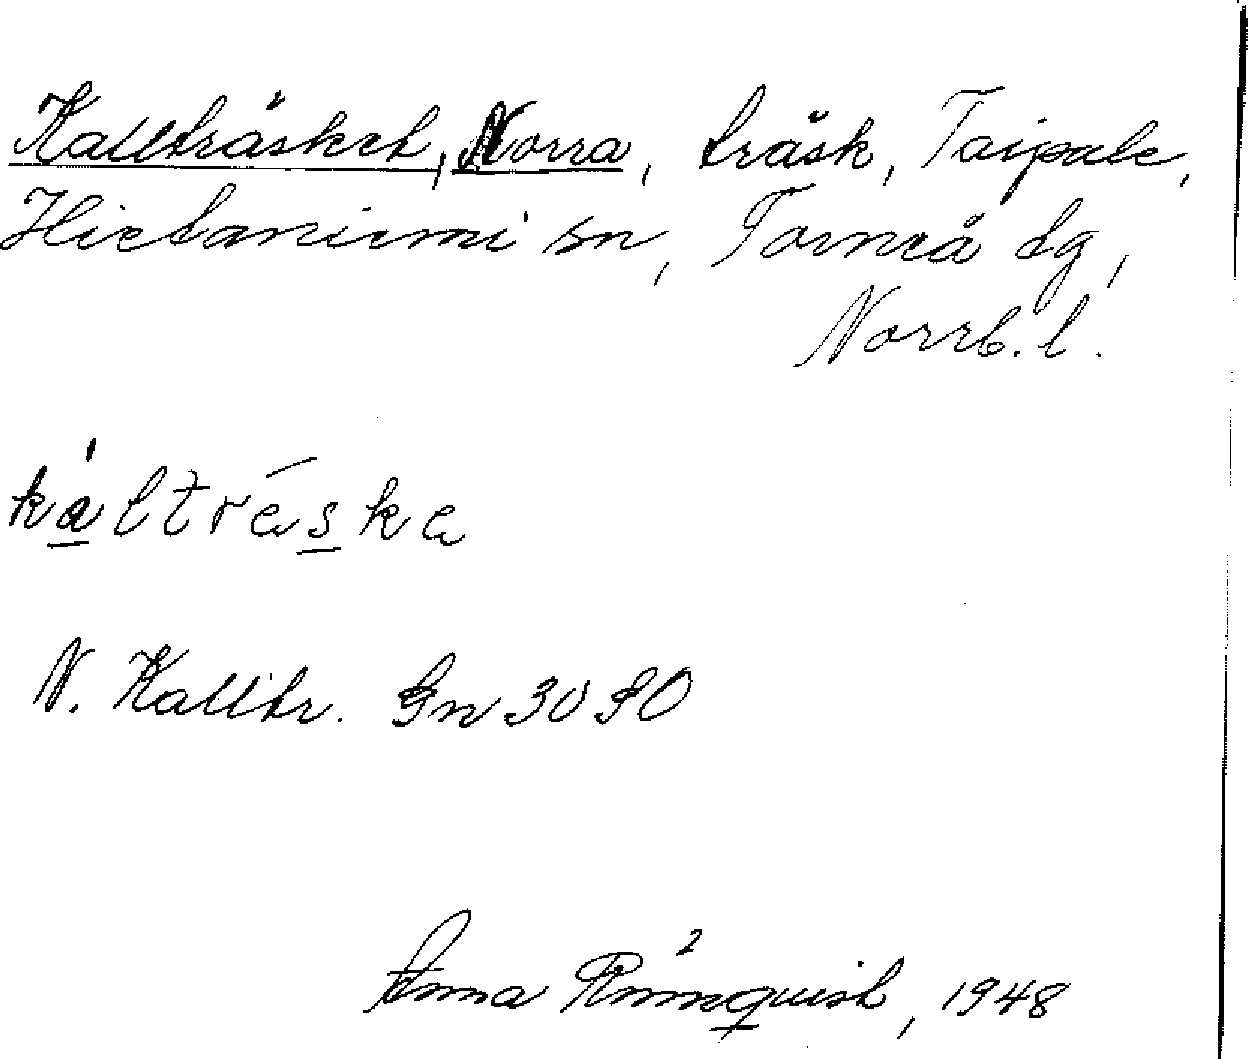 Kallträsket, Norra, träsk, Taipale,
Hietaniemi sn, Torneå tg,
Norrb. l.
kaltræska
N. Kalltr. Gn 3090
Anna Rönnquist, 1948